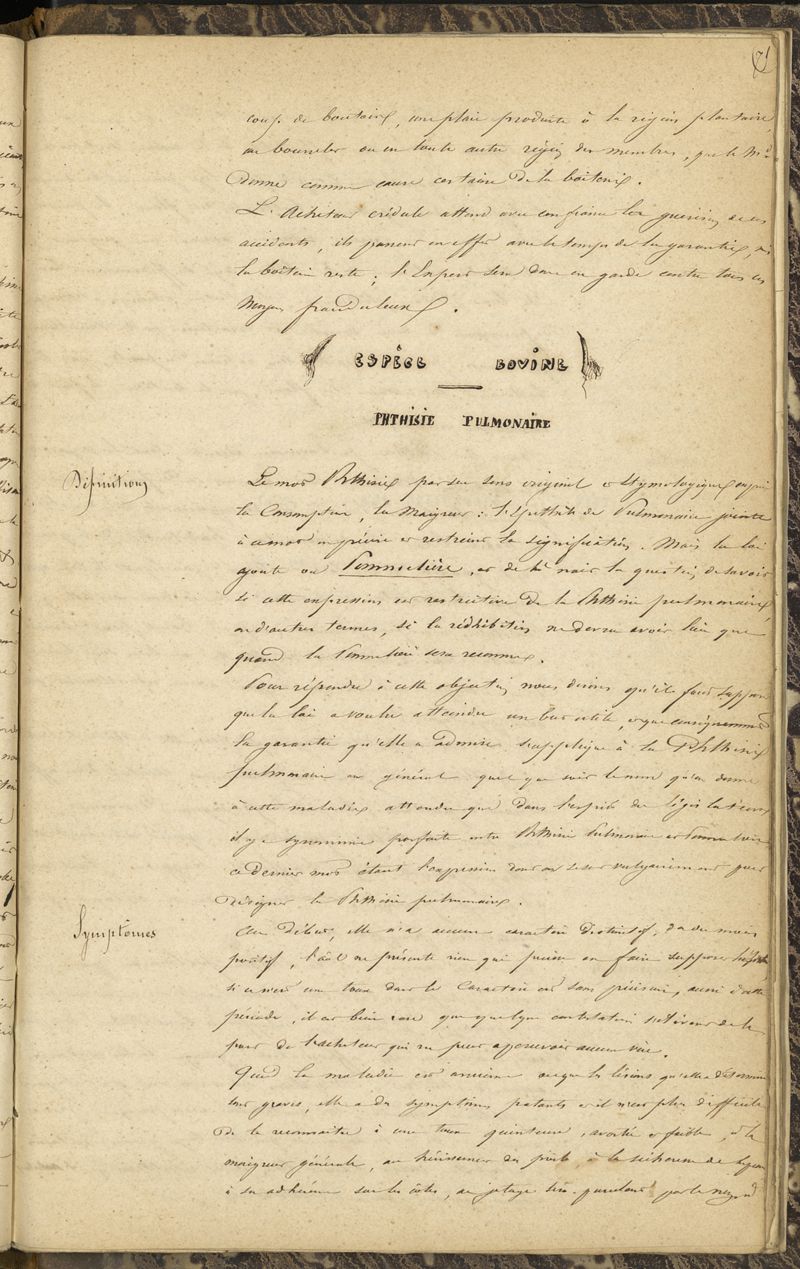 71
coup de boutoir, une plaie produite à la région plantaire,
au bourrelet ou en toute autre région des membres, que le Md
donne comme cause certaine de la boiterie.
L'Acheteur crédule attend avec confiance la guérison de ces
accidents, ils passent en effet avec le temps de la garantie,
la boiterie reste; l'Expert sera donc en garde contre tous ces
Moyens frauduleux.
ESPÈCE BOVINE
PHTHISIE PULMONAIRE
Définition
Le mot Phthisie par son sens originel et étymologique
la Consomption, la Maigreur: l'épithète de Pulmonaire jointe
à ce mot en précise et restreint la signification. Mais la loi
ajoute ou Pommelière, et de là nait la question de savoir
si cette expression est restrictive de la Phthisie pulmonaire,
en d'autres termes, si la rédhibition ne devra avoir lieu que
quand la Pommelière sera reconnue.
Pour répondre à cette objection nous dirons qu'il faut
que la loi a voulu atteindre un but utile, et que
la garantie qu'elle a admise s'applique à la Phthisie
pulmonaire en général quel que soit le nom qu'on donne
à cette maladie attendu que dans l'esprit du législateur
il y a synonimie parfaite entre Phthisie Pulmonaire et Pommelière
ce dernier mot étant l'expression dont on se sert vulgairement pour
désigner la Phthisie pulmonaire.
Symptômes
Au début, elle n'a aucun caractère distinctif, du moins
positif, l'œil ne présente rien qui puisse en faire supposer
si ce n'est une toux dont le caractère est sans précision, aussi à cette
période, il est bien rare que quelque contestation s'élève de la
part de l'acheteur qui ne peut apercevoir aucun vice.
Quand la maladie est ancienne ou que les lésions qu'elle détermine
sont graves, elle a des symptômes patents et il n'est plus difficile
de la reconnaître à une toux quinteuse, avortée et faible, à la
maigreur générale, au hérissement des poils à la sécheresse de la peau
à son adhérence sur les côtes, au jetage purulent par le nez